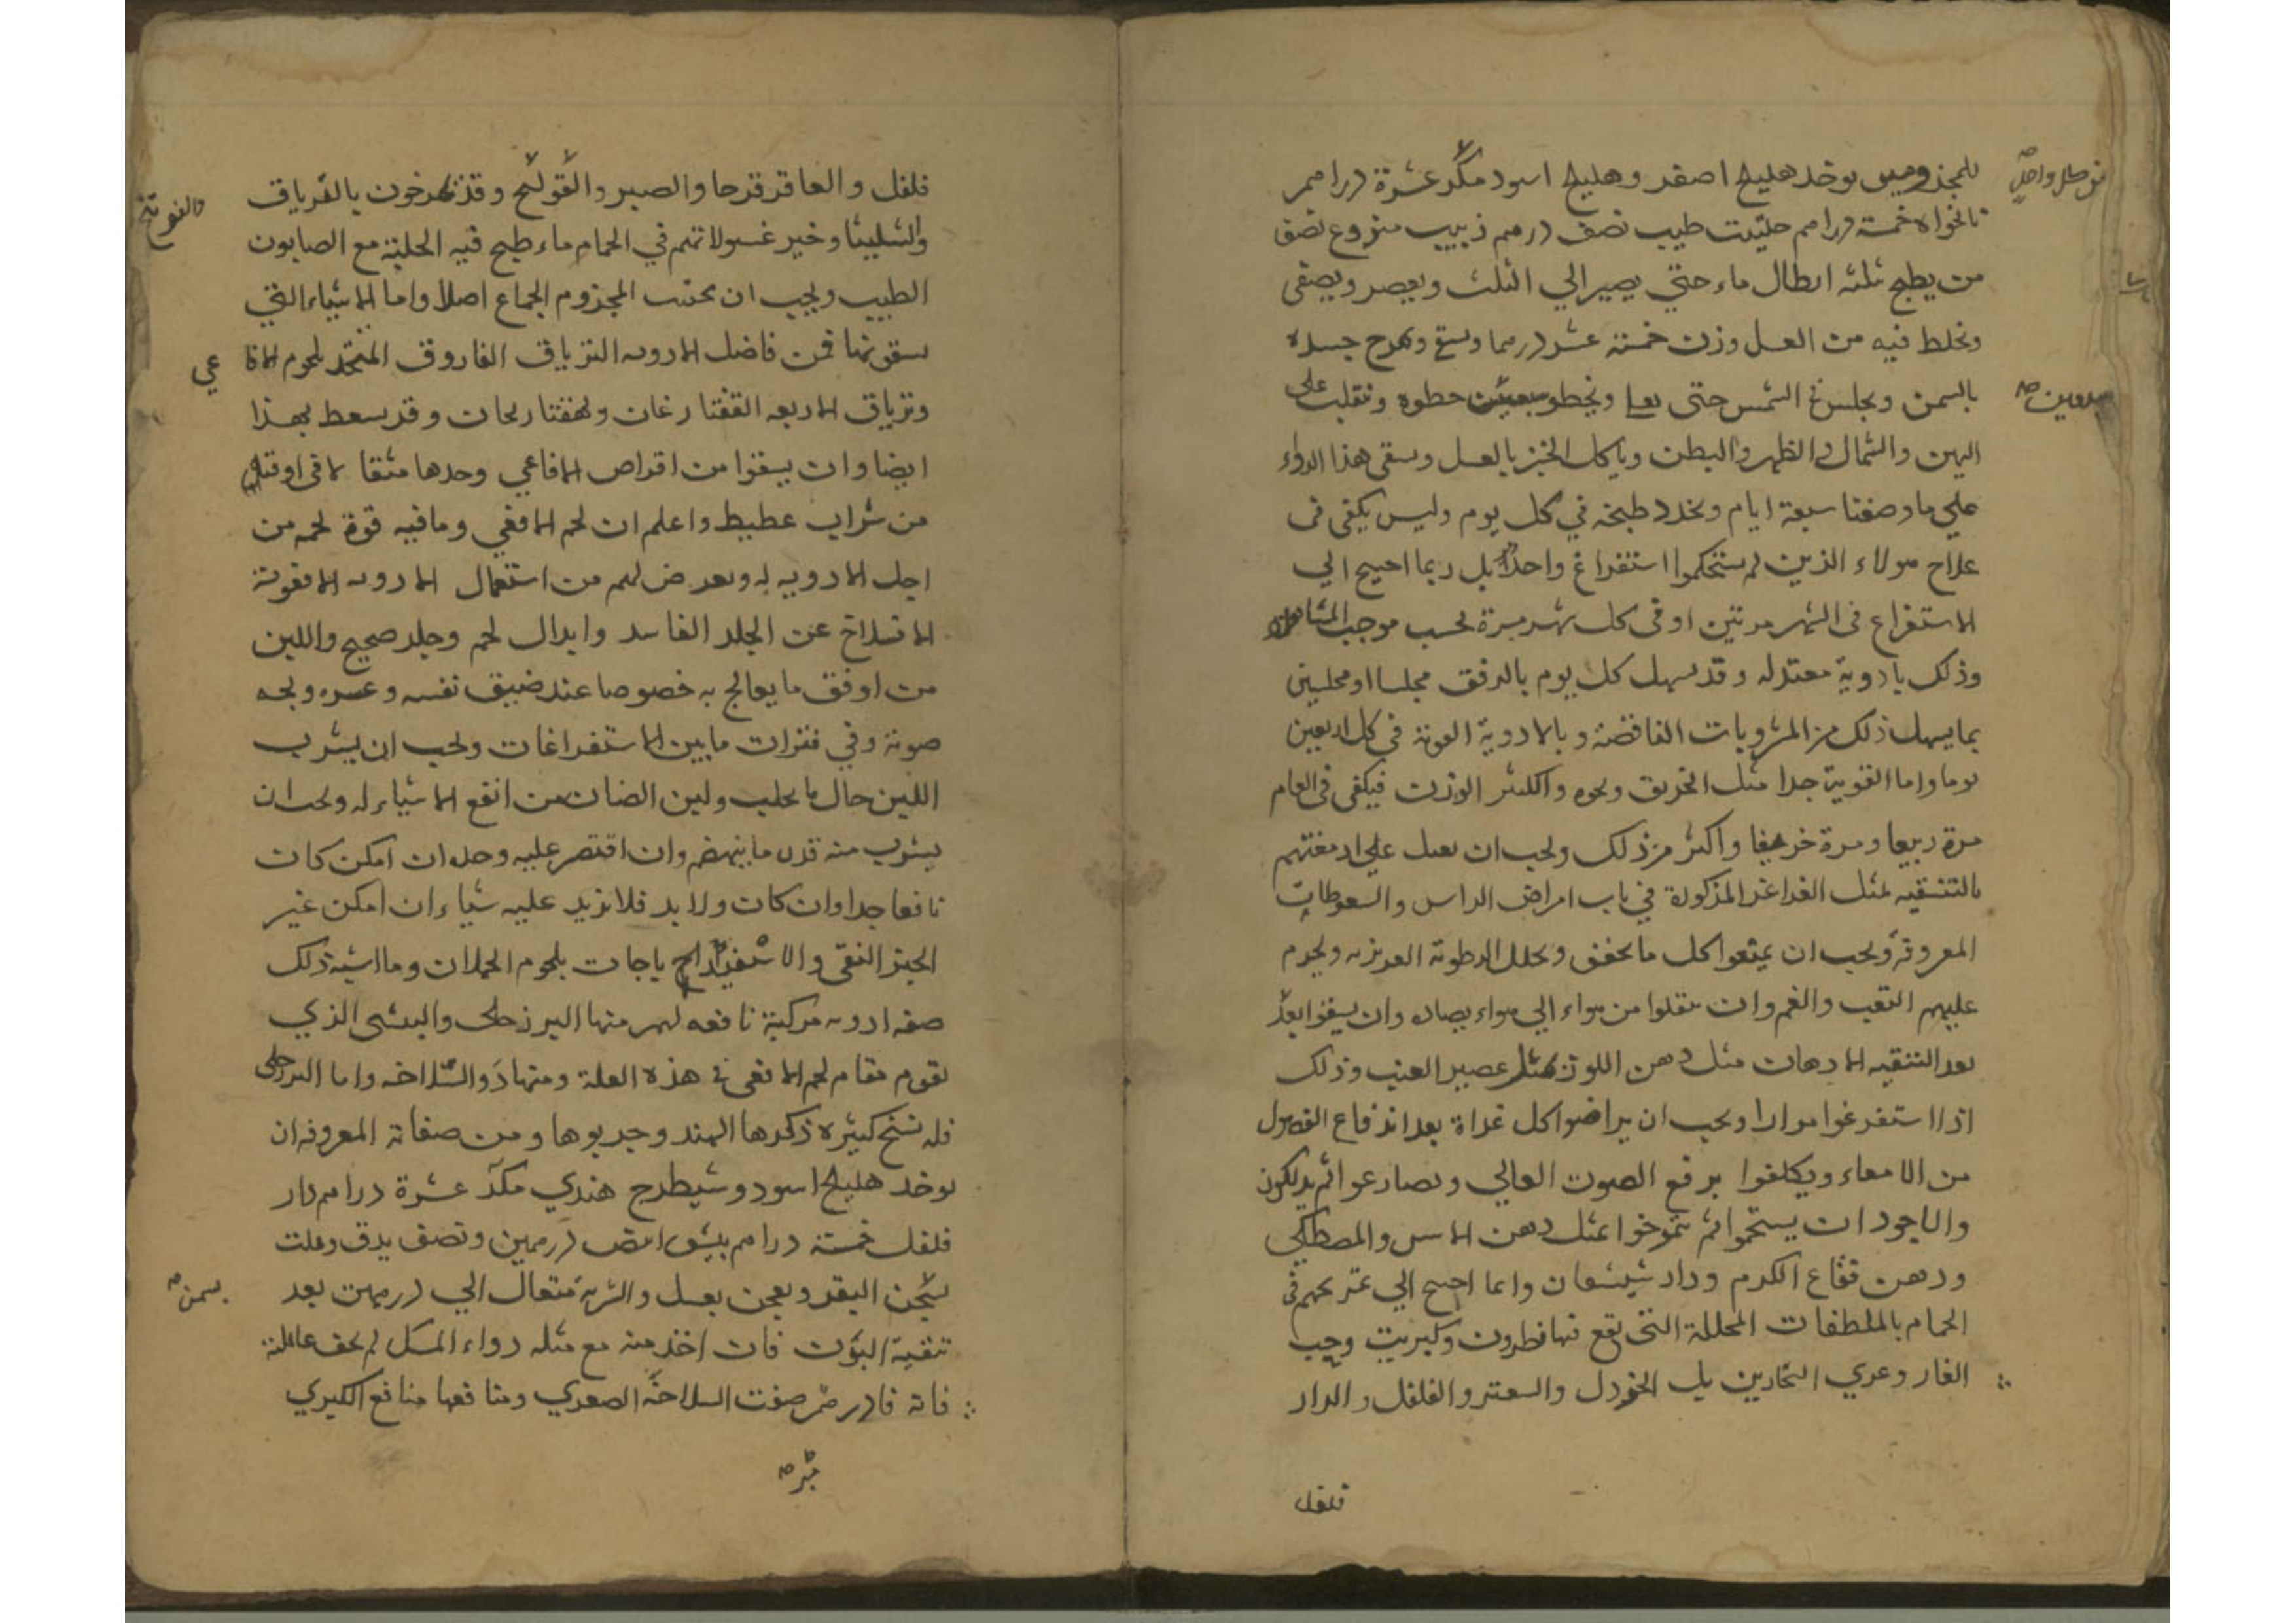 للمجذومين يوخد هليلج اصفر وهليلج اسود مكد عشرة دراهم
نانخواه خمسة دراهم حلتيت طيب نصف درهم زبيب منزوع نصف
من يطبح ثلثه ارطال ماء حتي يصير الي الثلث ويعصر ويصفى
ويخلط فيه من العسل وزن خمسة عشر درهما ويسقى ويمرح جسده
بالسمن ويجلس في الشمس حتى ويخطو سبعين خطوه ويتقلب على
اليمين والشمال والظهر والبطن وياكل الخبز بالعسل ويسقى هذا الدواء
علي ما وصفنا سبعة ايام ويجدد طبخه في كل يوم وليس يكفى فى
علاج هولاء الذين لم يستحكموا استفراغ واحد بل ربما احتيج الي
الاستفراغ فى الشهر مرتين او فى كل شهر مرة بحسب موجب المشاهدة
وذلك بادوية معتدله وقد يسهل كل يوم بالرفق مجلسا او مجلسين
بما يسهل ذلك من المشروبات الناقصة وبالادوية القوية فى كل اربعين
يوما واما القوية جدا مثل الخربق ونحوه والكثير الوزن فيكفى فى العام
مرة ربيعا ومرة خريفا واكثر من ذلك ويجب ان يعمل علي ادمغتهم
بالتنقيه بمثل الغراغر المذكورة في باب امراض الراس والسعوطات
المعروفة ويجب ان يمنعوا كل ما يجفف ويحلل الرطوبة الغريزيه ويحرم
عليهم التعب والغم وان ينقلوا من هواء الي هواء يضاده وان يسقوا بعد
بعد التنقيه الادهان مثل دهن اللوز بمثل عصير العنب وذلك
اذا استفرغوا مرارا ويجب ان يراضوا كل غداة بعد اندفاع الفضول
من الامعاء ويكلفوا برفع الصوت العالي ويصارعوا ثم يدلكون
والاجود ان يستحموا ثم يتمرخوا بمثل دهن الاس والمصطكي
ودهن فقاع الكرم ودار شيشعان وانما احتيج الي تمريخهم فى
الحمام بالملطفات المحللة التى يقع فيها نطرون وكبريت وحب
الغار وغري النجارين بل الخردل والسعتر والفلفل والدار
فلفل
فلفل والعاقر قرحا والصبر والقولنج وقد يمرخون بالترياق
والشليثا وخير غسولاتهم في الحمام ماء طبح فيه الحلبة مع الصابون
الطيب ويجب ان يجتنب المجزوم الجماع اصلا واما الاشياء التي
يسقونها فمن فاضل الادويه الترياق الفاروق المتخد بلحوم الافا
عي
وترياق الاربعه وقد يسعط بهذا
ايضا وان يسقوا من اقراص الافاعي وحدها مثقالا فى اوقية
من شراب عطيط واعلم ان لحم الافعي وما فيه قوة لحمه من
اجل الادويه له ويعرض لهم من استعمال الادويه الافعوية
الانسلاخ عن الجلد الفاسد وابدال لحم وجلد صحيح واللبن
من اوفق ما يعالج به خصوصا عند ضيق نفسه وعسره وبحه
صوته وفي فترات ما بين الاستفراغات ويجب ان يشرب
اللبن حال ما يحلب ولبن الضان من انفع الاشياء له ويجب ان
يشرب منه قدر ما ينهضم وان اقتصر عليه وحده ان امكن كان
نافعا جدا وان كان ولا بد فلا يزيد عليه شياء ان امكن غير
الخبز النقى والاسفيداج باجات بلحوم الحملان وما اشبه ذلك
صفه ادويه مركبة نافعه لهم منها البزرجلى والبيشى الذي
يقوم مقام لحم الافعى في هذه العلة ومنها دوا السلاخه واما البزرجلى
فله نسخ كثيره ذكرها الهند وجربوها ومن صفاته المعروفه ان
يوخد هليلج اسود وشيطرج هندي مكد عشرة دراهم دار
فلفل خمسة دراهم بيش ابيض درهمين ونصف يدق ويلت
بسمن البقر ويعجن بعسل والشربة مثقال الي درهمين بعد
بسمن
تنقية البدن فان اخذ منه مع مثله دواء المسك لم يخف غائلته
فانه فادزهره صفت السلاخة الصغري ومنافعها منافع الكبري